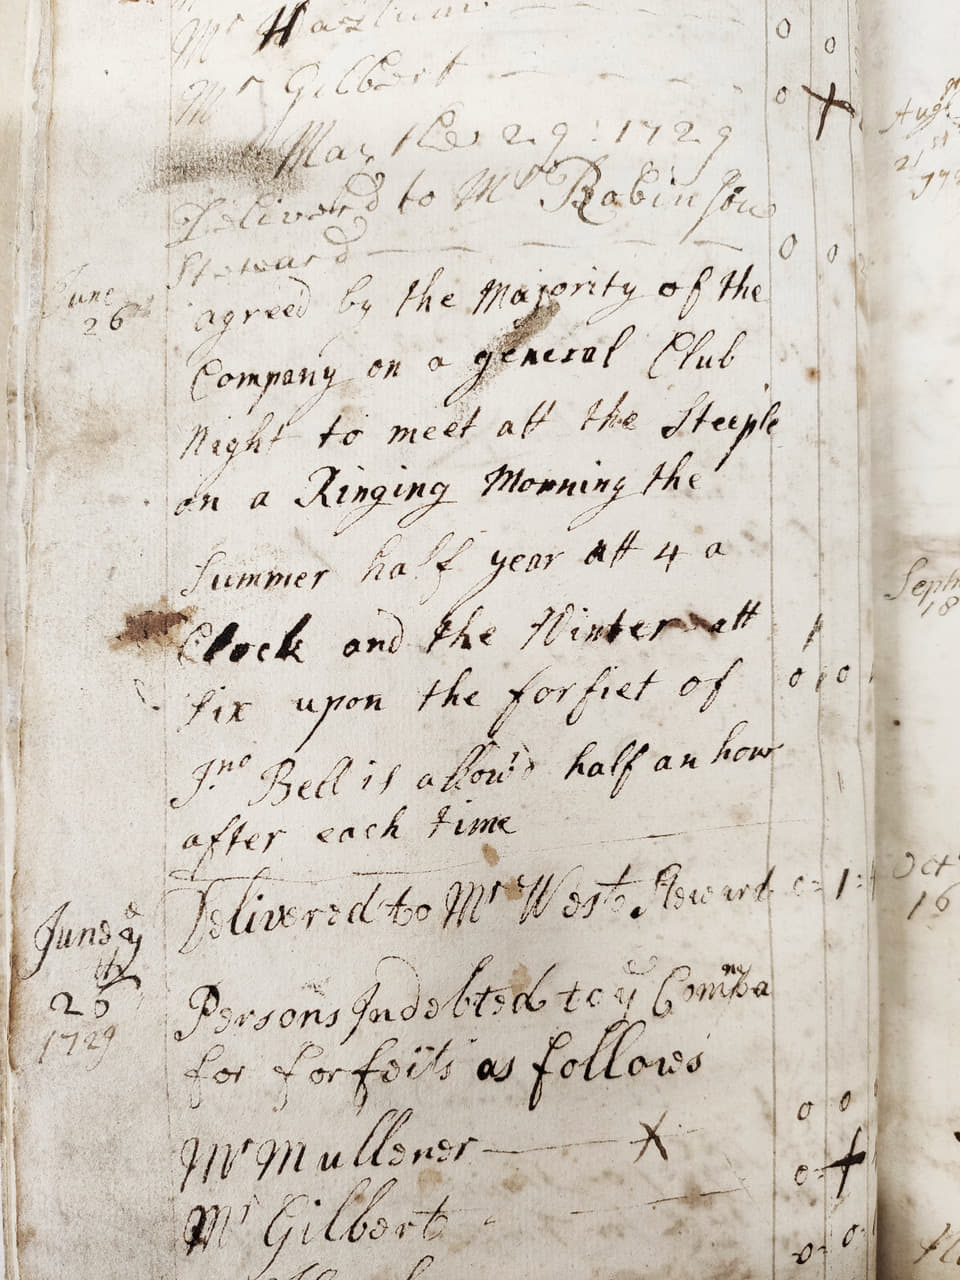 Mr Haslum
0 0
Mr Gilbert
0
May the 29: 1729
Delivered to Mr Robinson
Steward
0 0
June
26th
agreed by the Majority of the
Company on a general Club
Night to meet att the Steeple
on a Ringing Morning the
Summer half year att 4 a
Clock and the Winter att
Six upon the forfiet of
0 1 0
Jno Bell is allow'd half an hour
after each time
Delivered to Mr West Steward 0=1=
June ye
26
1729
Persons Indebted to ye Compna
for forfeits as follows
0 0
Mr Mullener X
0
Mr Gilbert
0 0
Augt
21st
Septr
18
Octr
16